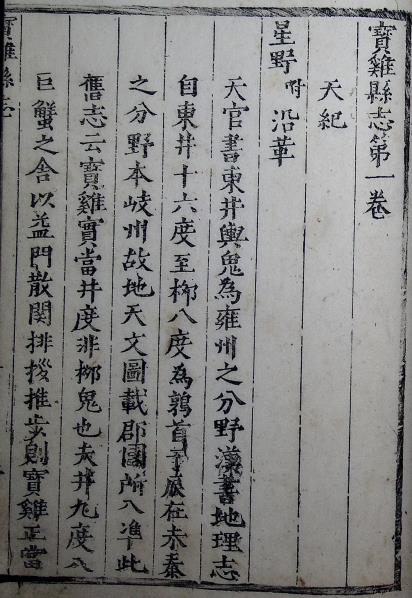 寶雞縣志第一卷
天紀
星野 附 沿革
天官書東井輿鬼為雍州之分野漢書地理志
自東井十六度至栁八度為鶉首于辰在未秦
之分野本岐州故地天文圖載郡國所入凖此
舊志云寶雞實當井度非栁鬼也夫井九度入
巨蟹之舍以益門散関排推步則寶雞正當
寶雞縣志